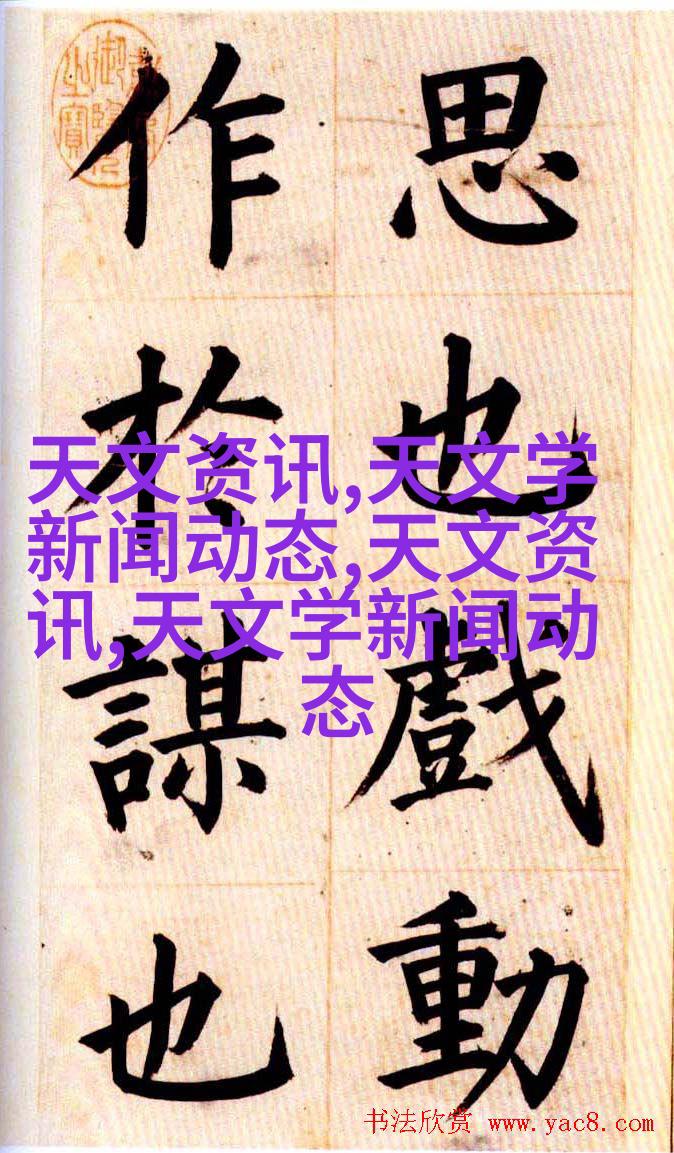 思也戲動
作於謀也
天文资讯,天文学
新闻动态,天文资
讯,天文学新闻动
态
书法欣赏 www.yac8.com